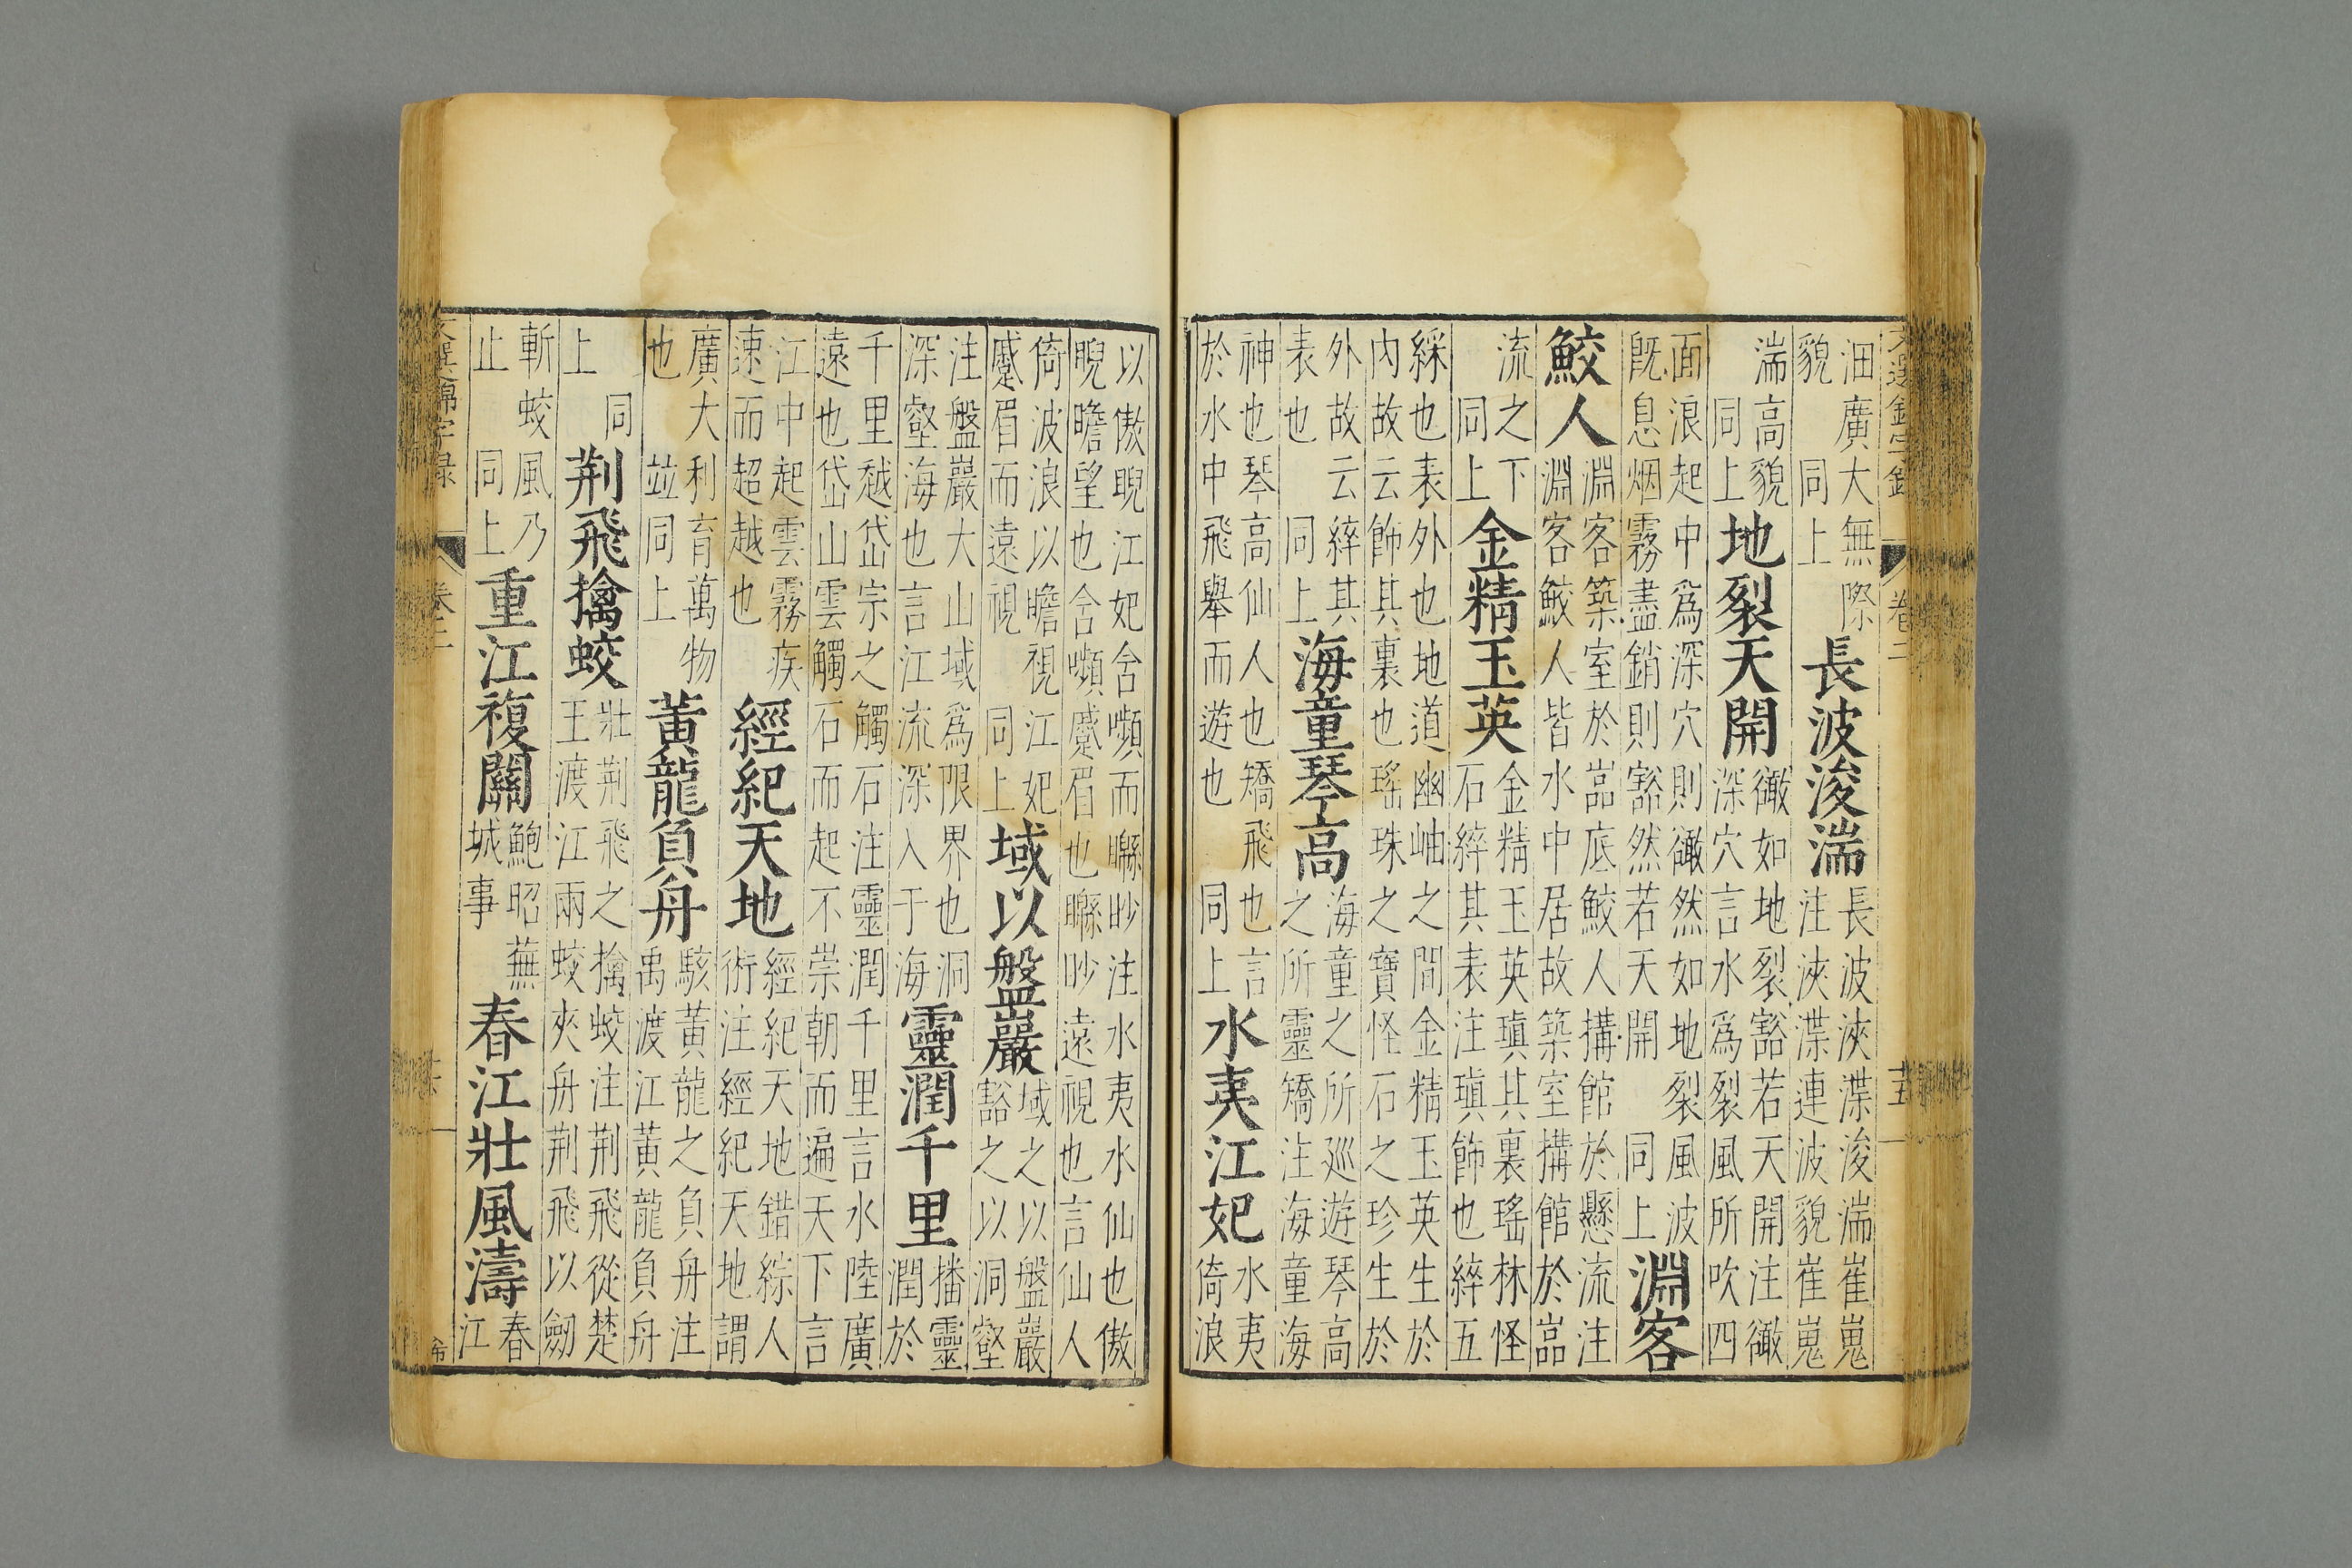 文選錦字錄 卷二 十五
沺廣大無際
貌 同上
長波浚湍
長波浹渫浚湍崔嵬
注浹渫連波貌崔嵬
湍高貌
同上
地裂天開
如地裂豁若天開注
深穴言水為裂風所吹四
面浪起中爲深穴則 然如地裂 風波
既息烟霧盡銷則豁然若天開 同上
淵客
鮫人
淵客築室於嵓底鮫人搆館於懸流注
淵客鮫人皆水中居故築室搆館於嵓
流之下
同上
金精玉英
金精玉英瑱其裏瑤林怪
石綷其表注瑱飾也綷五
綵也表外也地道幽岫之間金精玉英生於
內故云飾其裏也瑤珠之寶怪石之珍生於
外故云綷其
表也 同上
海童琴高
海童之所巡遊琴高
之所靈矯注海童海
神也琴高仙人也矯飛也言
於水中飛舉而遊也 同上
水夷江妃
水夷
倚浪
以傲睨江妃含嚬而矊眇注水夷水仙也傲
睨瞻望也含嚬蹙眉也矊眇遠視也言仙人
倚波浪以瞻視江妃
蹙眉而遠視 同上
域以盤巖
域之以盤巖
豁之以洞壑
注盤巖大山域爲限界也洞
深壑海也言江流深入于海
靈潤千里
播靈
潤於
千里越岱宗之觸石注靈潤千里言水陸廣
遠也岱山雲觸石而起不崇朝而遍天下言
江中起雲霧疾
速而超越也
經紀天地
經紀天地錯綜人
術注經紀天地謂
廣大利育萬物
也 竝同上
黃龍負舟
駭黃龍之負舟注
禹渡江黃龍負舟
同
上
荆飛擒蛟
壯荆飛之擒蛟注荆飛從楚
王渡江兩蛟夾舟荆飛以劒
斬蛟風乃
止 同上
重江複關
鮑昭蕪
城事
春江壯風濤
春
江
文選錦字録 卷二 十六 希